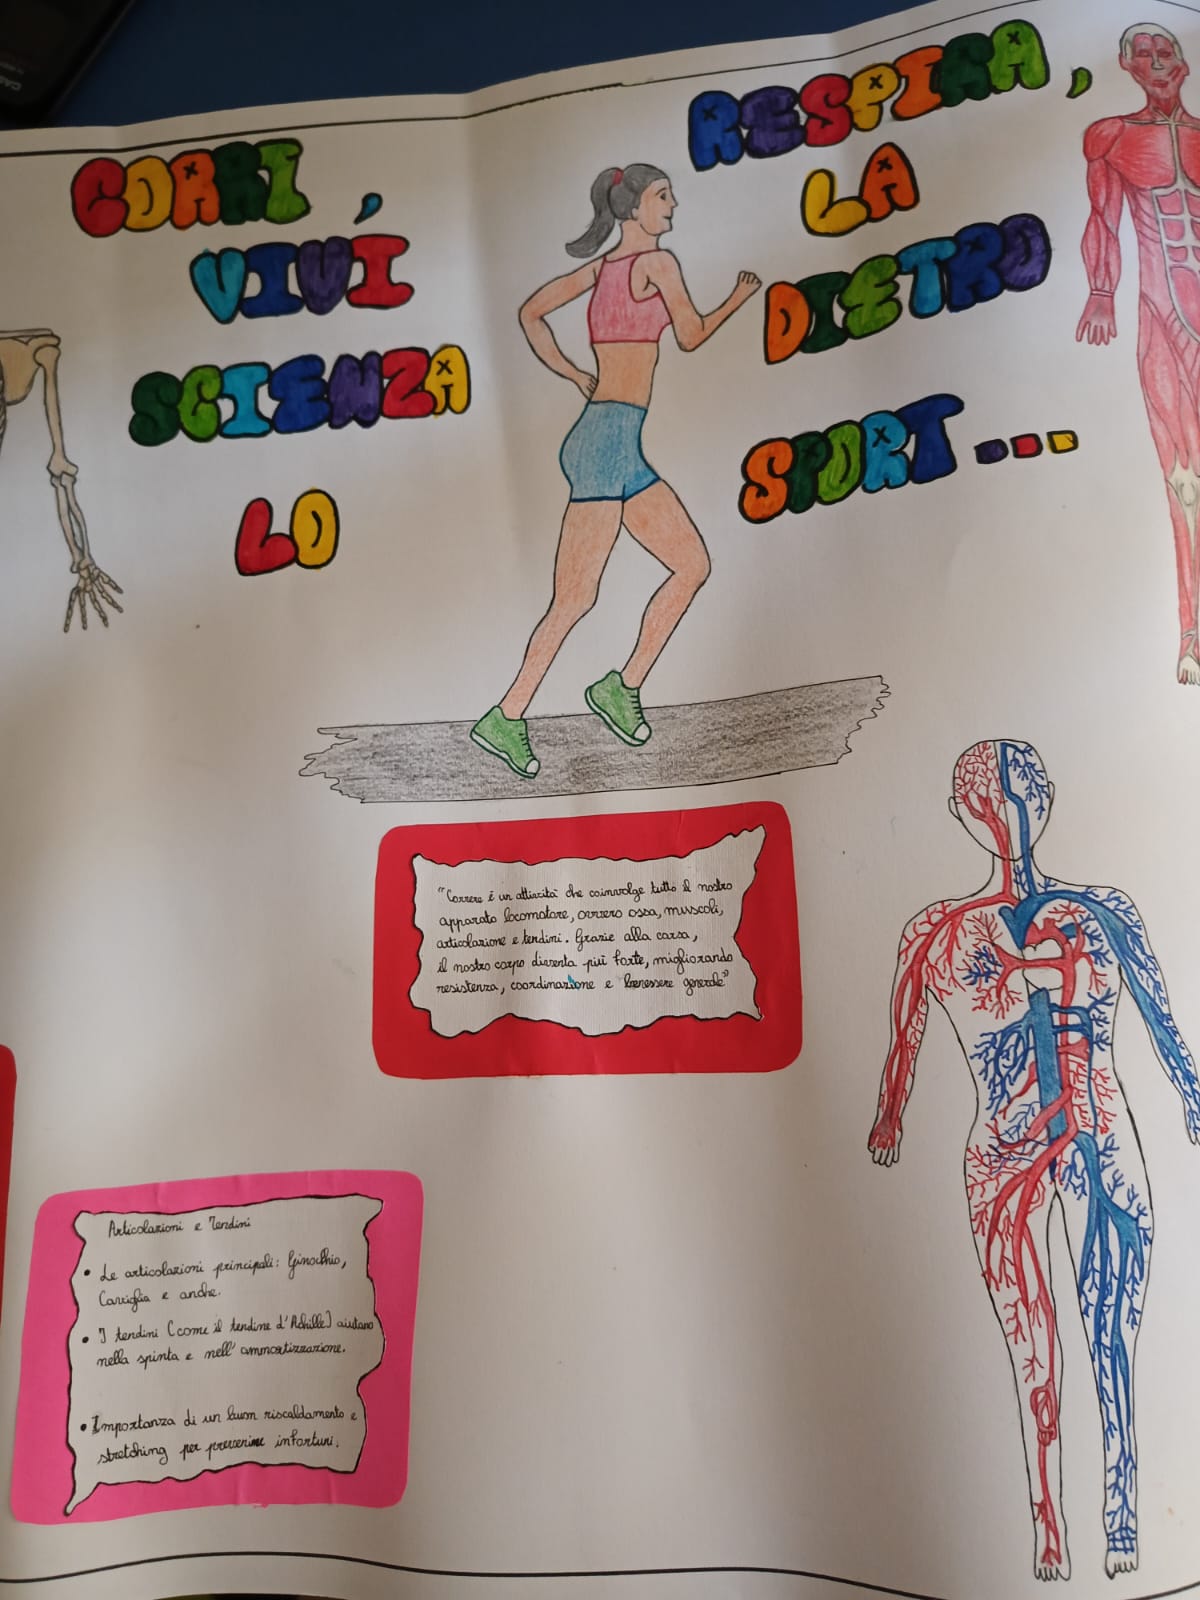 CORRI,
VIVI
SCIENZA
LO
RESPIRA,
LA
DIETRO
SPORT...
"Correre é un attivitá che coinvolge tutto il nostro
apparato locomotore, ovvero ossa, muscoli,
articolazione e tendini. Grazie alla corsa,
il nostro corpo diventa piú forte, migliorando
resistenza, coordinazione e benessere generale"
Articolazioni e Tendini
• Le articolazioni principali: Ginocchio,
Caviglia e anche.
• I tendini (come il tendine d'Achille) aiutano
nella spinta e nell' ammortizzazione.
• Importanza di un buon riscaldamento e
stretching per prevenire infortuni.